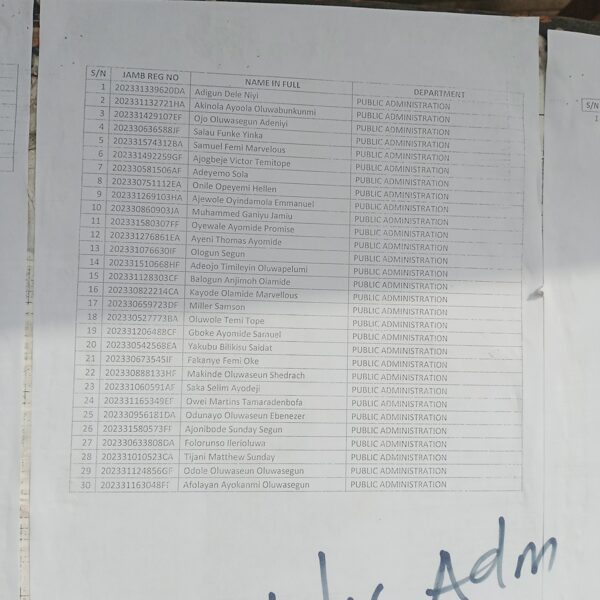 S/N JAMB REG NO NAME IN FULL DEPARTMENT
1 202331339620DA Adigun Dele Niyi PUBLIC ADMINISTRATION
2 202331132721HA Akinola Ayoola Oluwabunkunmi PUBLIC ADMINISTRATION
3 202331429107EF Ojo Oluwasegun Adeniyi PUBLIC ADMINISTRATION
4 202330636588JF Salau Funke Yinka PUBLIC ADMINISTRATION
5 202331574312BA Samuel Femi Marvelous PUBLIC ADMINISTRATION
6 202331492259GF Ajogbeje Victor Temitope PUBLIC ADMINISTRATION
7 202330581506AF Adeyemo Sola PUBLIC ADMINISTRATION
8 202330751112EA Onile Opeyemi Hellen PUBLIC ADMINISTRATION
9 202331269103HA Ajewole Oyindamola Emmanuel PUBLIC ADMINISTRATION
10 202330860903JA Muhammed Ganiyu Jamiu PUBLIC ADMINISTRATION
11 202331580307FF Oyewale Ayomide Promise PUBLIC ADMINISTRATION
12 202331276861EA Ayeni Thomas Ayomide PUBLIC ADMINISTRATION
13 202331076630IF Ologun Segun PUBLIC ADMINISTRATION
14 202331510668HF Adeojo Timileyin Oluwapelumi PUBLIC ADMINISTRATION
15 202331128303CF Balogun Anjimoh Olamide PUBLIC ADMINISTRATION
16 202330822214CA Kayode Olamide Marvellous PUBLIC ADMINISTRATION
17 202330659723DF Miller Samson PUBLIC ADMINISTRATION
18 202330527773BA Oluwole Temi Tope PUBLIC ADMINISTRATION
19 202331206488CF Gboke Ayomide Samuel PUBLIC ADMINISTRATION
20 202330542568EA Yakubu Bilikisu Saidat PUBLIC ADMINISTRATION
21 202330673545IF Fakanye Femi Oke PUBLIC ADMINISTRATION
22 202330888133HF Makinde Oluwaseun Shedrach PUBLIC ADMINISTRATION
23 202331060591AF Saka Selim Ayodeji PUBLIC ADMINISTRATION
24 202331165349EF Owei Martins Tamaradenbofa PUBLIC ADMINISTRATION
25 202330956181DA Odunayo Oluwaseun Ebenezer PUBLIC ADMINISTRATION
26 202331580573FF Ajonibode Sunday Segun PUBLIC ADMINISTRATION
27 202330633808DA Folorunso Ilerioluwa PUBLIC ADMINISTRATION
28 202331010523CA Tijani Matthew Sunday PUBLIC ADMINISTRATION
29 202331124856GF Odole Oluwaseun Oluwasegun PUBLIC ADMINISTRATION
30 202331163048FF Afolayan Ayokanmi Oluwasegun PUBLIC ADMINISTRATION
Adm
S/N
1